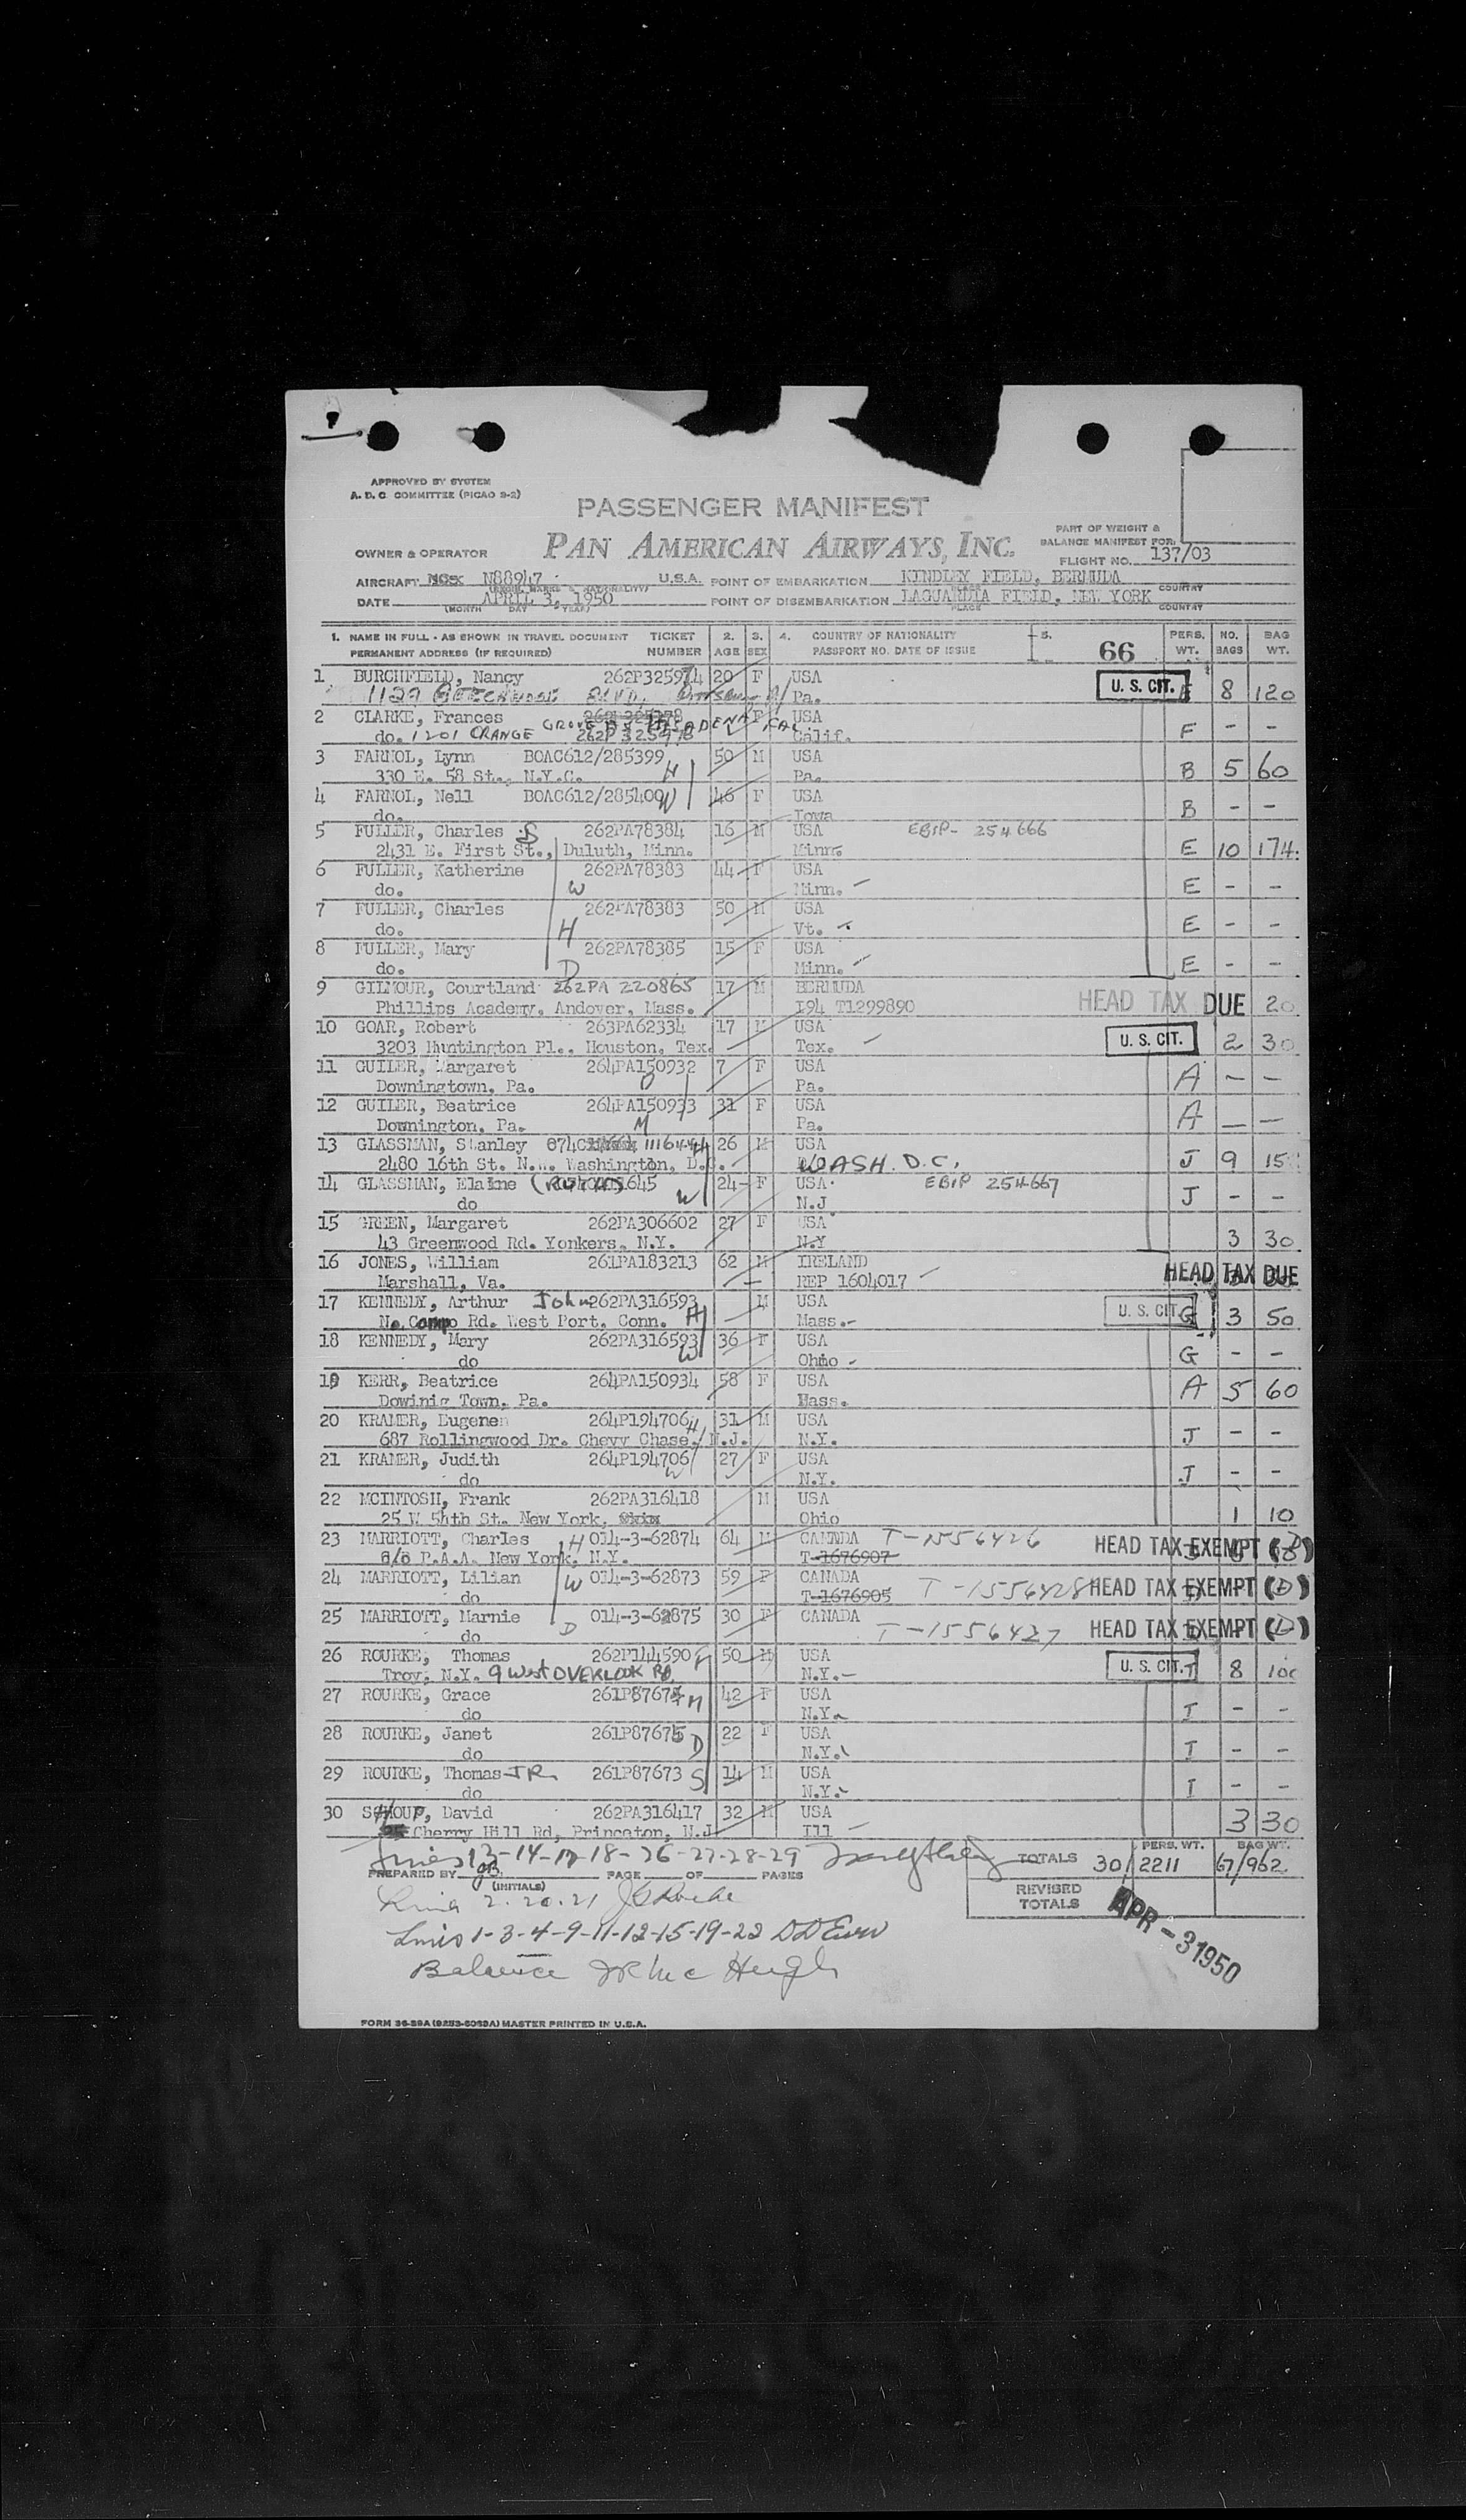 APPROVED BY SYSTEM
A. D. C. COMMITTEE (PICAO 2-2)
PASSENGER MANIFEST
PAN AMERICAN AIRWAYS, INC.
PART OF WEIGHT &
BALANCE MANIFEST FOR:
FLIGHT NO. 137/03
OWNER & OPERATOR
AIRCRAFT N88947 U.S.A. POINT OF EMBARKATION KINDLEY FIELD, BERMUDA COUNTRY
DATE APRIL 3, 1950 POINT OF DISEMBARKATION LAGUARDIA FIELD, NEW YORK COUNTRY
(MONTH DAY YEAR) PLACE
1. NAME IN FULL - AS SHOWN IN TRAVEL DOCUMENT TICKET 2. 3. 4. COUNTRY OF NATIONALITY 5. 66 PERS. NO. BAG
PERMANENT ADDRESS (IF REQUIRED) NUMBER AGE SEX PASSPORT NO. DATE OF ISSUE WT. BAGS WT.
1 BURCHFIELD, Nancy 262P325974 20 F USA U. S. CIT. 8 120
1129 BEECHWOOD BLVD. Pa.
2 CLARKE, Frances F USA F - -
do. 1201 ORANGE GROVE AV PASADENA CAL Calif.
3 FARNOL, Lynn BOAC612/285399 50 M USA
330 E. 58 St., N.Y.C. H Pa. B 5 60
4 FARNOL, Nell BOAC612/285400 W 46 F USA
do. Iowa B - -
5 FULLER, Charles S 262PA78384 16 M USA EBIP- 254666
2431 E. First St., Duluth, Minn. Minn. E 10 174
6 FULLER, Katherine 262PA78383 44 F USA
do. W Minn. E - -
7 FULLER, Charles 262PA78383 50 M USA
do. H Vt. E - -
8 FULLER, Mary 262PA78385 15 F USA
do. D Minn. E - -
9 GILMOUR, Courtland 262PA 220865 17 M BERMUDA
Phillips Academy, Andover, Mass. I94 T1299890 HEAD TAX DUE 20
10 GOAR, Robert 263PA62334 17 M USA U. S. CIT.
3203 Huntington Pl., Houston, Tex. Tex. 2 30
11 GUILER, Margaret 264PA150932 7 F USA
Downingtown, Pa. D Pa. A - -
12 GUILER, Beatrice 264PA150933 31 F USA
Downington, Pa. M Pa. A - -
13 GLASSMAN, Stanley H 26 M USA
2480 16th St. N.W. Washington, D.C. WASH. D.C. J 9 15
14 GLASSMAN, Elaine W 24 F USA EBIP 254667
do N.J J - -
15 GREEN, Margaret 262PA306602 27 F USA
43 Greenwood Rd. Yonkers, N.Y. N.Y 3 30
16 JONES, William 261PA183213 62 M IRELAND HEAD TAX DUE
Marshall, Va. REP 1604017
17 KENNEDY, Arthur John 262PA316593 M USA U. S. CIT.
No. Compo Rd. West Port, Conn. H Mass. G 3 50
18 KENNEDY, Mary 262PA316593 36 F USA
do W Ohio G - -
19 KERR, Beatrice 264PA150934 58 F USA
Dowinig Town, Pa. Mass. A 5 60
20 KRAMER, Eugene 264P194706 H 31 M USA
687 Rollingwood Dr. Chevy Chase, N.J. N.Y. J - -
21 KRAMER, Judith 264P194706 27 F USA
do W N.Y. J - -
22 MCINTOSH, Frank 262PA316418 M USA
25 W 54th St. New York, Ohio 1 10
23 MARRIOTT, Charles H 014-3-62874 64 M CANADA T-1556426 HEAD TAX EXEMPT (D)
P.A.A. New York, N.Y. T-1676907
24 MARRIOTT, Lilian W 014-3-62873 59 F CANADA
do T-1676905 T-1556428 HEAD TAX EXEMPT (D)
25 MARRIOTT, Marnie 014-3-62875 30 F CANADA
do D T-1556427 HEAD TAX EXEMPT (D)
26 ROURKE, Thomas 262P144590 F 50 M USA U. S. CIT.
Troy, N.Y. 9 West OVERLOOK RD N.Y. I 8 100
27 ROURKE, Grace M 42 F USA
do N.Y. I - -
28 ROURKE, Janet 261P87675 22 F USA
do D N.Y. I - -
29 ROURKE, Thomas JR. 261P87673 14 M USA
do S N.Y. I - -
30 SHOUP, David 262PA316417 32 M USA
Cherry Hill Rd, Princeton, N.J Ill 3 30
Lines 13-14-17-18-26-27-28-29
PREPARED BY PAGE OF PAGES
(INITIALS)
TOTALS 30 PERS. WT. 2211 BAG WT. 67/962
REVISED
TOTALS
2. 20. 21
APR -3 1950
Lines 1-3-4-9-11-12-15-19-22
Balance McHugh
FORM 36-29A MASTER PRINTED IN U.S.A.